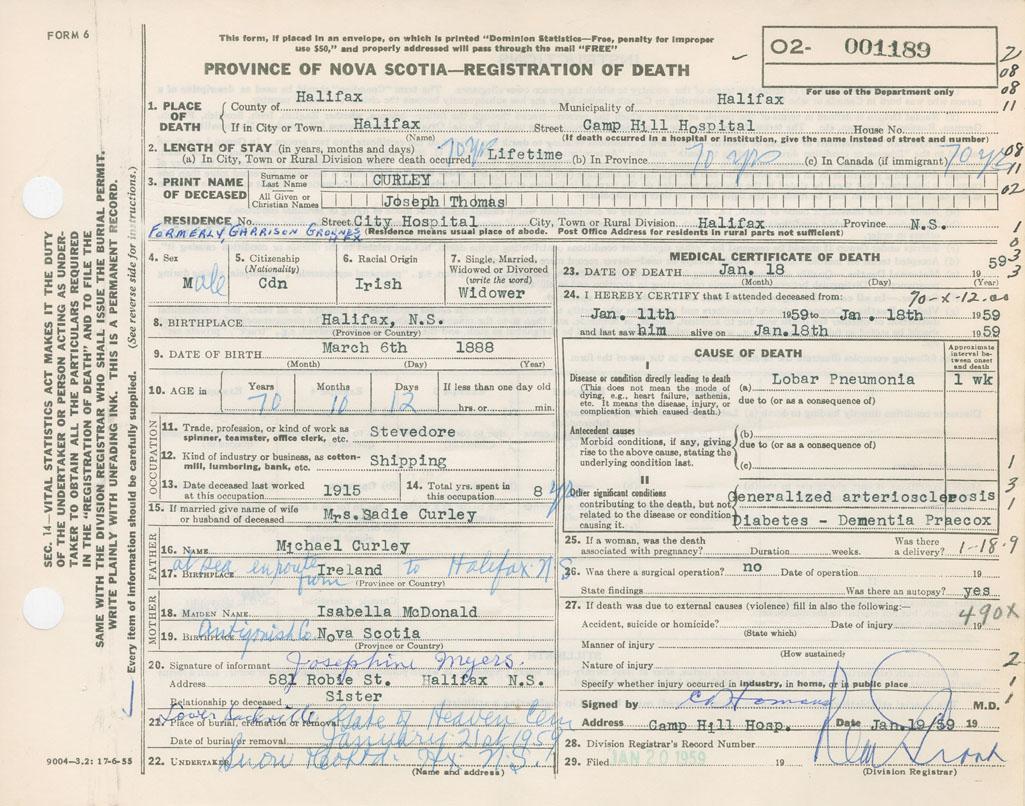 FORM 6
This form, if placed in an envelope, on which is printed "Dominion Statistics—Free, penalty for improper
use $50," and properly addressed will pass through the mail "FREE"
PROVINCE OF NOVA SCOTIA—REGISTRATION OF DEATH
02- 001189
For use of the Department only
21
08
08
11
08
11
02
1
0
3
3
SEC. 14—VITAL STATISTICS ACT MAKES IT THE DUTY
OF THE UNDERTAKER OR PERSON ACTING AS UNDER-
TAKER TO OBTAIN ALL THE PARTICULARS REQUIRED
IN THE "REGISTRATION OF DEATH" AND TO FILE THE
SAME WITH THE DIVISION REGISTRAR WHO SHALL ISSUE THE BURIAL PERMIT.
WRITE PLAINLY WITH UNFADING INK. THIS IS A PERMANENT RECORD.
Every item of information should be carefully supplied. (See reverse side for instructions.)
1. PLACE OF DEATH
County of Halifax Municipality of Halifax
If in City or Town Halifax Street Camp Hill Hospital House No.
(Name) (If death occurred in a hospital or institution, give the name instead of street and number)
2. LENGTH OF STAY (in years, months and days)
(a) In City, Town or Rural Division where death occurred 70 yrs Lifetime (b) In Province 70 yrs (c) In Canada (if immigrant) 70 yrs
3. PRINT NAME OF DECEASED
Surname or Last Name CURLEY
All Given or Christian Names Joseph Thomas
RESIDENCE No. Street City Hospital City, Town or Rural Division Halifax Province N.S.
FORMERLY, GARRISON GROUNDS HFX (Residence means usual place of abode. Post Office Address for residents in rural parts not sufficient)
4. Sex Male
5. Citizenship (Nationality) Cdn
6. Racial Origin Irish
7. Single, Married, Widowed or Divorced (write the word) Widower
8. BIRTHPLACE Halifax, N.S.
(Province or Country)
9. DATE OF BIRTH March 6th 1888
(Month) (Day) (Year)
10. AGE in Years Months Days If less than one day old
70 10 12 hrs. or min.
OCCUPATION
11. Trade, profession, or kind of work as spinner, teamster, office clerk, etc. Stevedore
12. Kind of industry or business, as cotton-mill, lumbering, bank, etc. Shipping
13. Date deceased last worked at this occupation 1915
14. Total yrs. spent in this occupation 8 yrs
15. If married give name of wife or husband of deceased Mrs. Sadie Curley
FATHER
16. NAME Michael Curley
17. BIRTHPLACE at sea enroute from Ireland to Halifax N.S.
(Province or Country)
MOTHER
18. MAIDEN NAME Isabella McDonald
19. BIRTHPLACE Antigonish Co. Nova Scotia
(Province or Country)
20. Signature of informant Josephine Myers.
Address 581 Robie St. Halifax N.S.
Relationship to deceased Sister
21. Place of burial, cremation or removal Lower Sackville Gate of Heaven Cem
Date of burial or removal January 21st 1959
22. UNDERTAKER Snow Hfx. N.S.
(Name and address)
9004—3.2: 17-6-55
MEDICAL CERTIFICATE OF DEATH
23. DATE OF DEATH Jan. 18 1959
(Month) (Day) (Year)
24. I HEREBY CERTIFY that I attended deceased from: 70-X-12.00
Jan. 11th 1959 to Jan. 18th 1959
and last saw him alive on Jan. 18th 1959
CAUSE OF DEATH
Approximate interval between onset and death
I
Disease or condition directly leading to death
(This does not mean the mode of dying, e.g., heart failure, asthenia, etc. It means the disease, injury, or complication which caused death.)
(a) Lobar Pneumonia 1 wk
due to (or as a consequence of)
Antecedent causes
Morbid conditions, if any, giving rise to the above cause, stating the underlying condition last.
(b)
due to (or as a consequence of)
(c)
II
Other significant conditions
contributing to the death, but not related to the disease or condition causing it.
Generalized arteriosclerosis
Diabetes - Dementia Praecox
1
3
1
25. If a woman, was the death associated with pregnancy? Duration weeks. Was there a delivery? 1-18-9
26. Was there a surgical operation? no Date of operation 19
State findings Was there an autopsy? yes
27. If death was due to external causes (violence) fill in also the following:—
490X
Accident, suicide or homicide? Date of injury 19
(State which)
Manner of injury
(How sustained)
Nature of injury
2
Specify whether injury occurred in industry, in home, or in public place
1
Signed by M.D.
1
Address Camp Hill Hosp. Date Jan.19/59
28. Division Registrar's Record Number
29. Filed JAN 20 1959 19
(Division Registrar)